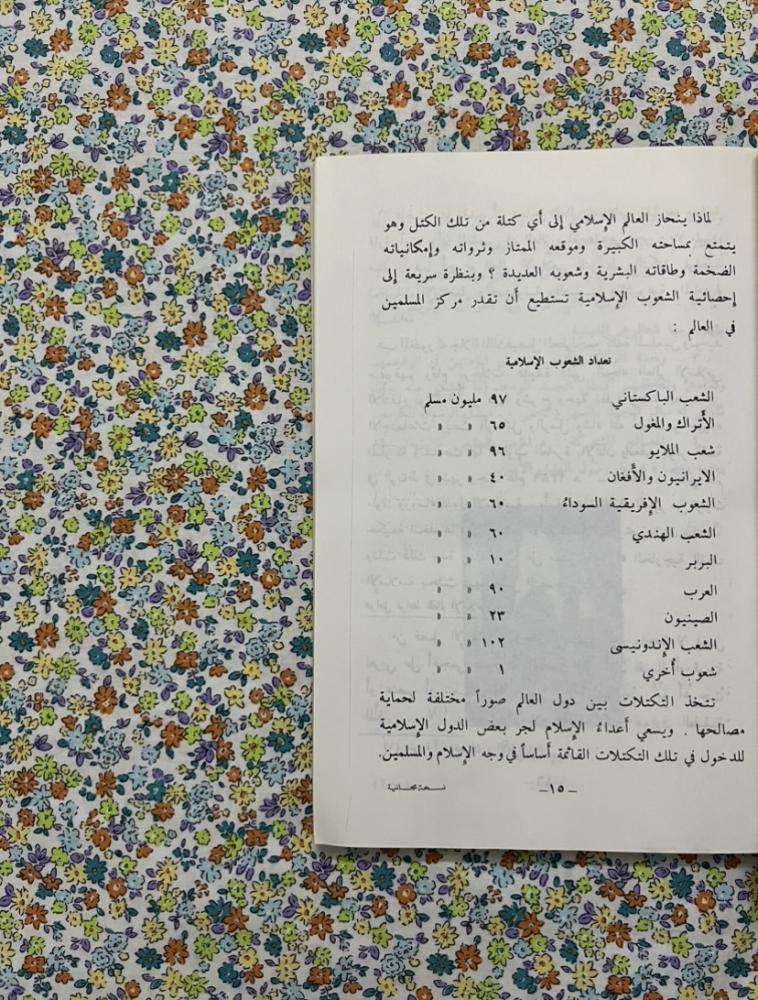 لماذا ينحاز العالم الإسلامي إلى أي كتلة من تلك الكتل وهو
يتمتع بمساحته الكبيرة وموقعه الممتاز وثرواته وإمكانياته
الضخمة وطاقاته البشرية وشعوبه العديدة ؟ وبنظرة سريعة إلى
إحصائية الشعوب الإسلامية تستطيع أن تقدر مركز المسلمين
في العالم :
تعداد الشعوب الإسلامية
الشعب الباكستاني ٩٧ مليون مسلم
الأتراك والمغول ٦٥ « «
شعب الملايو ٩٦ « «
الايرانيون والأفغان ٤٠ « «
الشعوب الإفريقية السوداءُ ٦٠ « «
الشعب الهندي ٦٠ « «
البربر ١٠ « «
العرب ٩٠ « «
الصينيون ٢٣ « «
الشعب الإندونيسى ١٠٢ « «
شعوب أخري ١ « «
تتخذ التكتلات بين دول العالم صوراً مختلفة لحماية
مصالحها . ويسعي أعداءُ الإسلام لجر بعض الدول الإسلامية
للدخول في تلك التكتلات القائمة أساساً في وجه الإسلام والمسلمين.
–١٥– نسخة مجانية